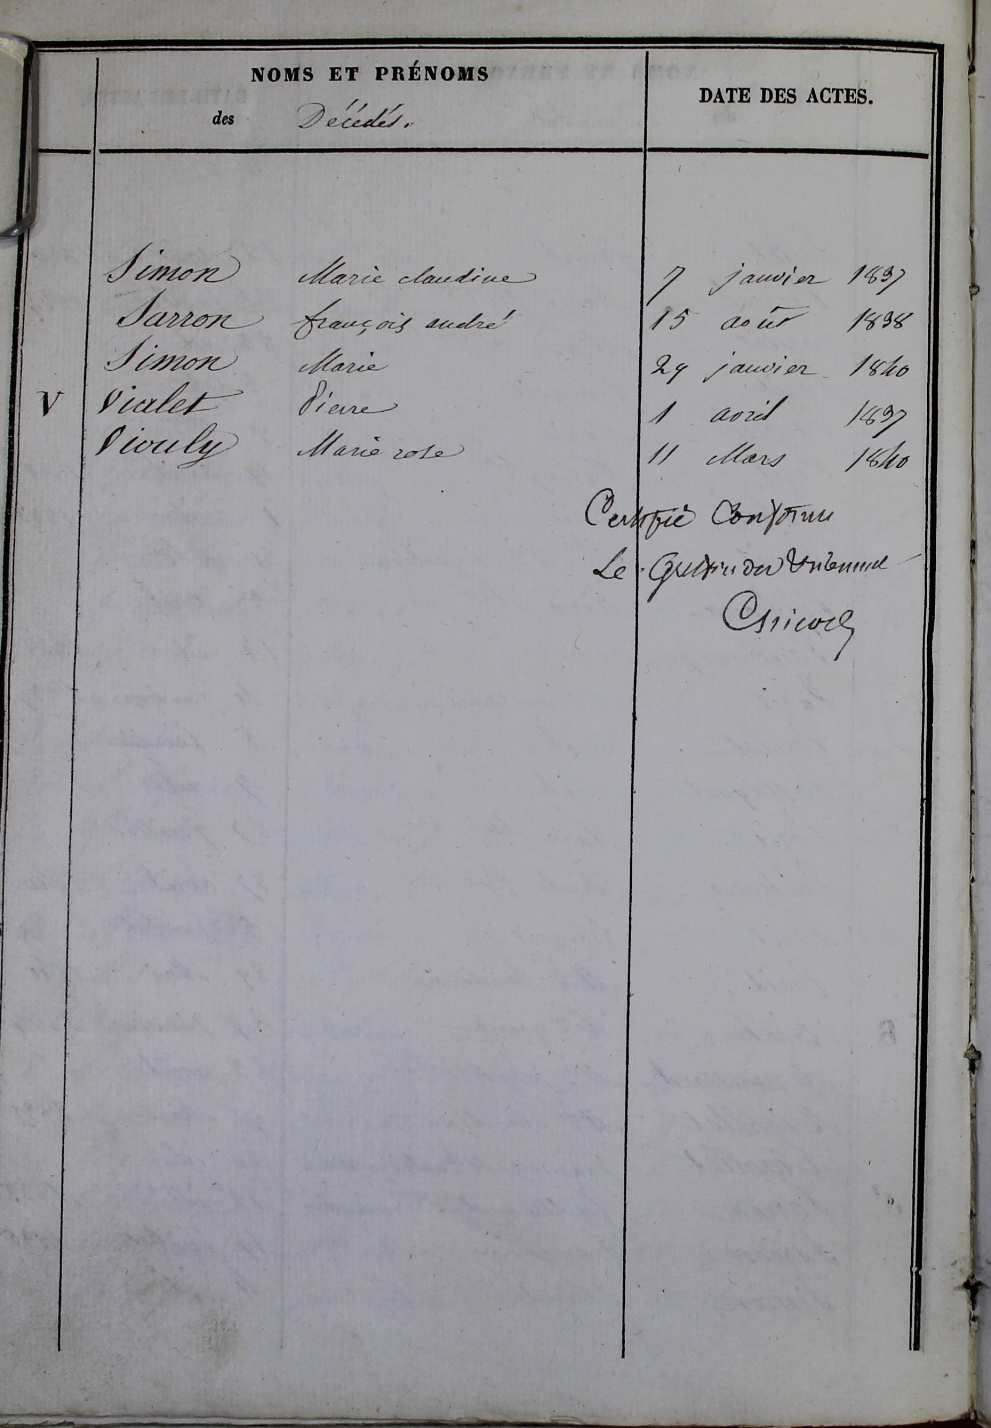 NOMS ET PRÉNOMS
des Décédés.
DATE DES ACTES.
Simon Marie claudine 7 janvier 1837
Sarron françois andré 15 août 1838
Simon Marie 29 janvier 1840
V Vialet Pierre 1 avril 1837
Viouly Marie rose 11 Mars 1840
Certifié Conforme
Le Greffier du Tribunal